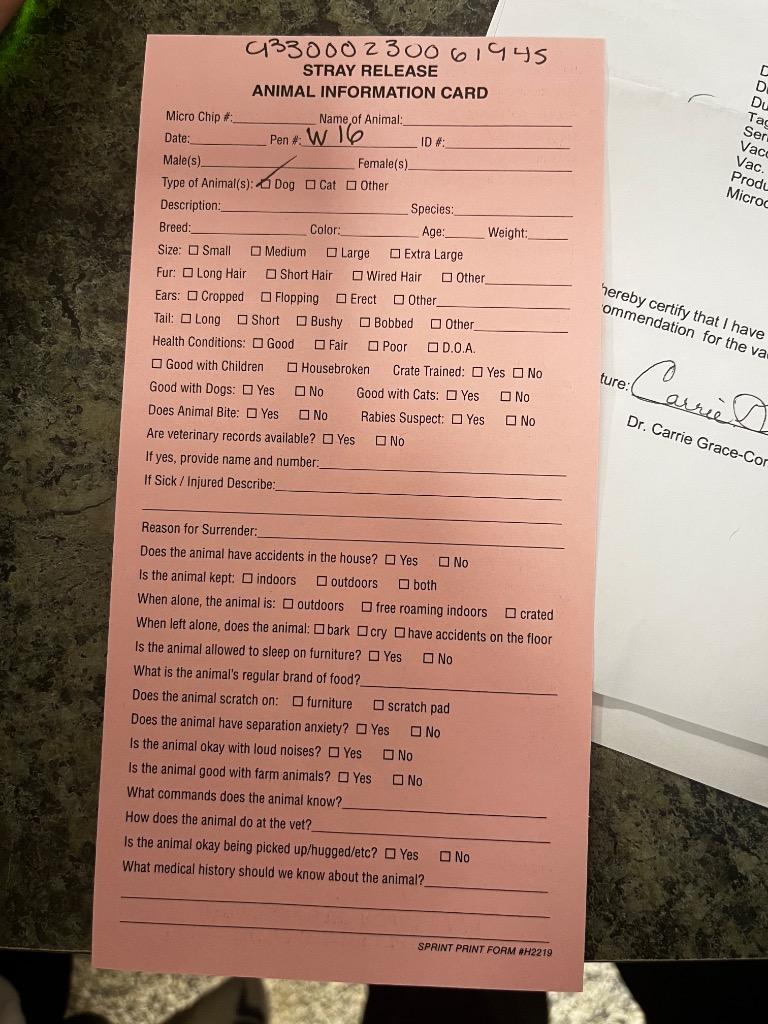 933000230061945
STRAY RELEASE
ANIMAL INFORMATION CARD
Micro Chip #: Name of Animal:
Date: Pen #: W 16 ID #:
Male(s) Female(s)
Type of Animal(s): Dog Cat Other
Description: Species:
Breed: Color: Age: Weight:
Size: Small Medium Large Extra Large
Fur: Long Hair Short Hair Wired Hair Other
Ears: Cropped Flopping Erect Other
Tail: Long Short Bushy Bobbed Other
Health Conditions: Good Fair Poor D.O.A.
Good with Children Housebroken Crate Trained: Yes No
Good with Dogs: Yes No Good with Cats: Yes No
Does Animal Bite: Yes No Rabies Suspect: Yes No
Are veterinary records available? Yes No
If yes, provide name and number:
If Sick / Injured Describe:
Reason for Surrender:
Does the animal have accidents in the house? Yes No
Is the animal kept: indoors outdoors both
When alone, the animal is: outdoors free roaming indoors crated
When left alone, does the animal: bark cry have accidents on the floor
Is the animal allowed to sleep on furniture? Yes No
What is the animal's regular brand of food?
Does the animal scratch on: furniture scratch pad
Does the animal have separation anxiety? Yes No
Is the animal okay with loud noises? Yes No
Is the animal good with farm animals? Yes No
What commands does the animal know?
How does the animal do at the vet?
Is the animal okay being picked up/hugged/etc? Yes No
What medical history should we know about the animal?
SPRINT PRINT FORM #H2219
Du
Tag
Vac.
Produ
Microc
hereby certify that I have
ommendation for the va
ture: Carrie
Dr. Carrie Grace-Cor